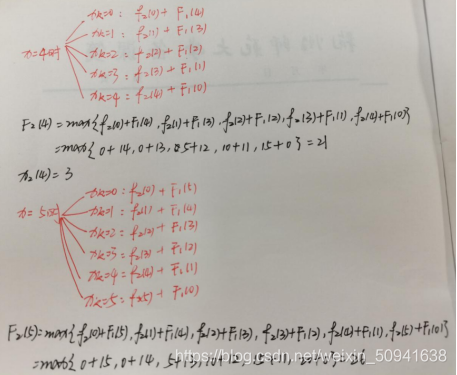 xk=0: f₂(0)+F₁(4)
xk=1: f₂(1)+F₁(3)
x=4时 xk=2: f₂(2)+F₁(2)
xk=3: f₂(3)+F₁(1)
xk=4: f₂(4)+F₁(0)
F₂(4)=max{f₂(0)+F₁(4),f₂(1)+F₁(3),f₂(2)+F₁(2),f₂(3)+F₁(1),f₂(4)+F₁(0)}
=max{0+14,0+13,5+12,10+11,15+0}=21
x₂(4)=3
xk=0: f₂(0)+F₁(5)
xk=1: f₂(1)+F₁(4)
x=5时 xk=2: f₂(2)+F₁(3)
xk=3: f₂(3)+F₁(2)
xk=4: f₂(4)+F₁(1)
xk=5: f₂(5)+F₁(0)
F₂(5)=max{f₂(0)+F₁(5),f₂(1)+F₁(4),f₂(2)+F₁(3),f₂(3)+F₁(2),f₂(4)+F₁(1),f₂(5)+F₁(0)}
=max{0+15,0+14,5+13,
https://blog.csdn.net/weixin_50941638